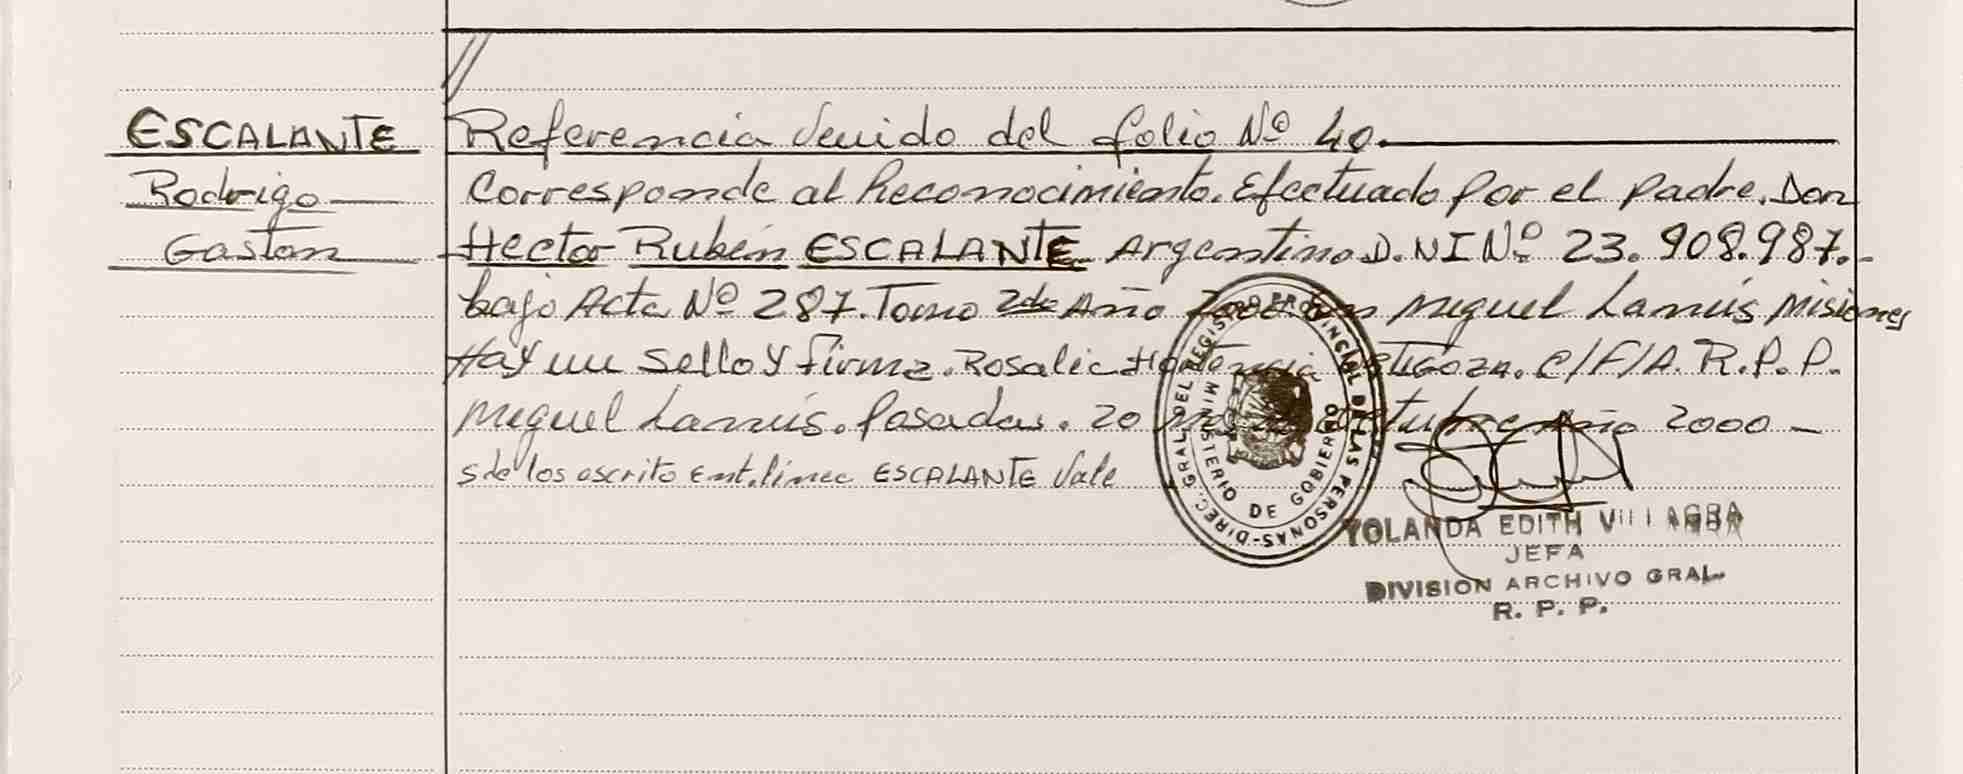 ESCALANTE
Rodrigo
Gaston
Referencia Venido del folio Nº 40.
Corresponde al Reconocimiento. Efectuado por el padre. Don
Hector Rubén ESCALANTE Argentino D.NI Nº 23.908.987.-
bajo Acta Nº 287. Tomo 2do Año 2000 en Miguel Lanús Misiones
Hay un Sello y firma. Rosalia Hortencia C/F/A. R.P.P.
Miguel Lanús. Posadas. 20 de Octubre Año 2000 -
s de los escrito Ent.linea ESCALANTE Vale
DIREC. GRAL. DEL REGISTRO PROVINCIAL DE LAS PERSONAS-
MINISTERIO DE GOBIERNO
YOLANDA EDITH VILLAGRA
JEFA
DIVISION ARCHIVO GRAL.
R. P. P.